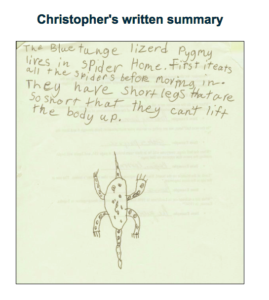 Christopher's written summary
The Blue tunge lizerd Pygmy
lives in spider Home. First it eats
all the spiders before moving in.
They have short legs that are
so short that they can't lift
the body up.